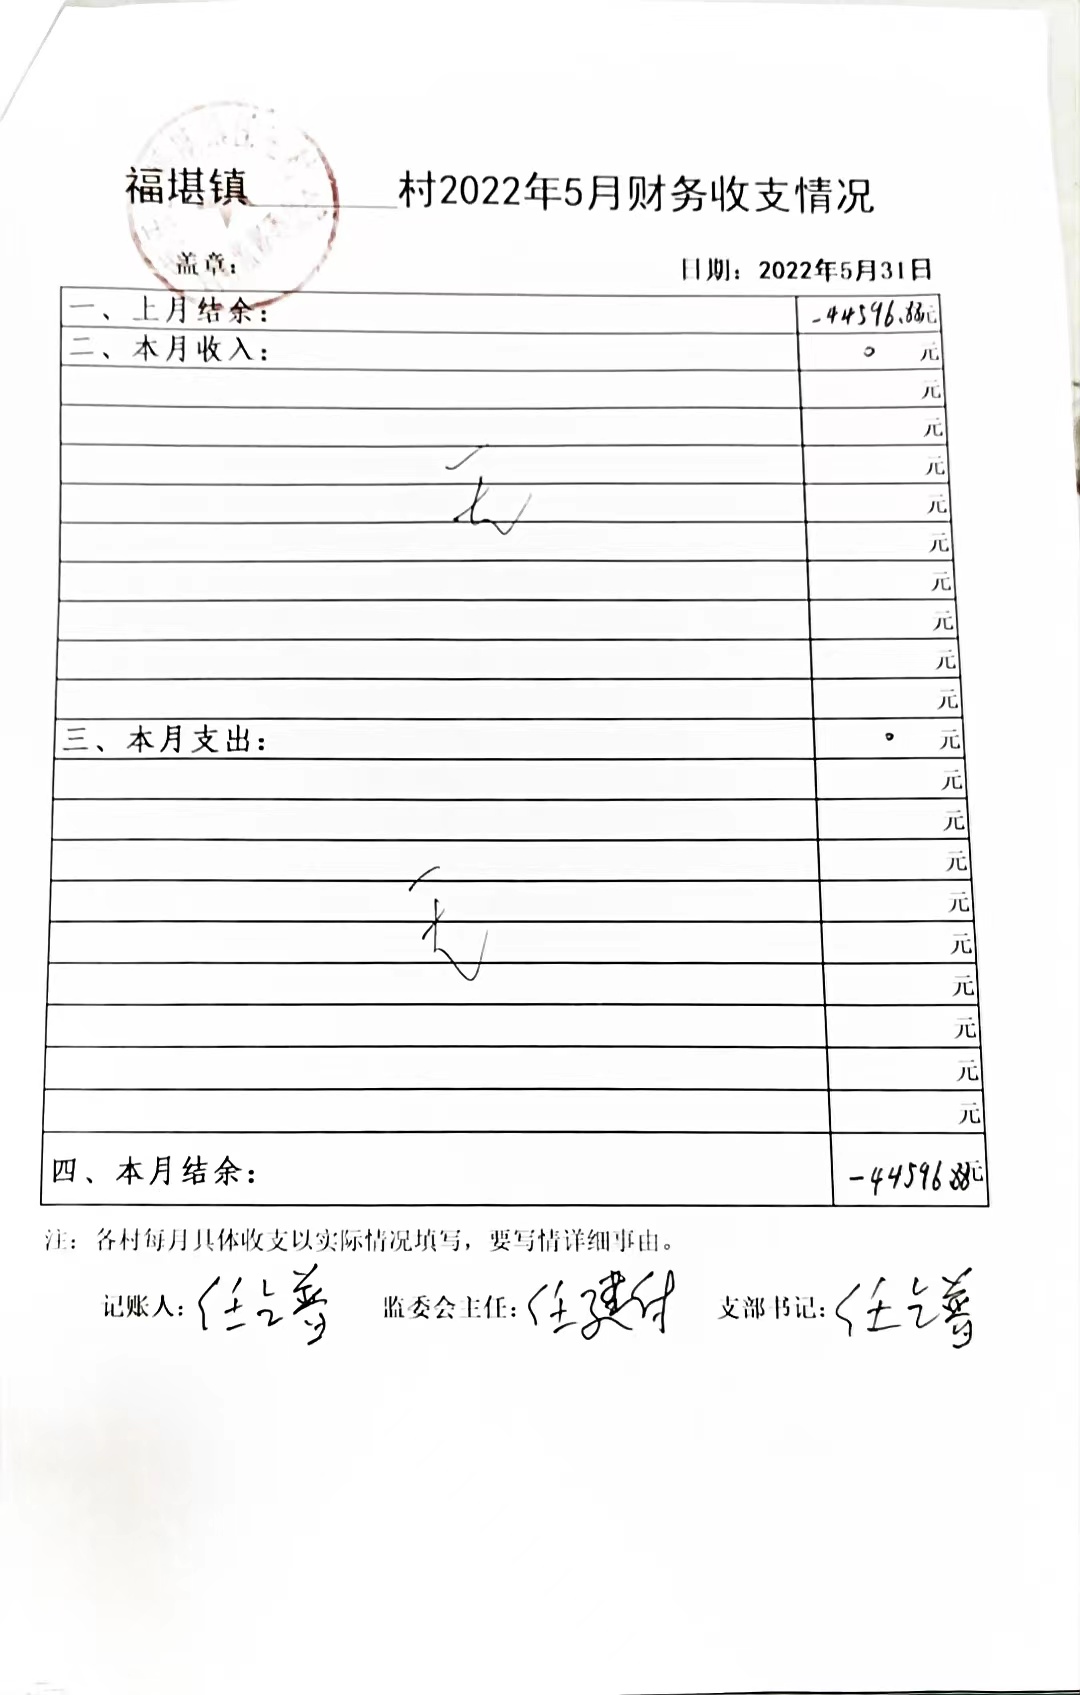 福堪镇 村2022年5月财务收支情况
盖章: 日期: 2022年5月31日
一、上月结余: -44596.88元
二、本月收入: 0 元
元
元
元
无
元
元
元
元
元
元
三、本月支出: 0 元
元
元
元
元
无
元
元
元
元
元
四、本月结余: -44596.88元
注: 各村每月具体收支以实际情况填写, 要写情详细事由。
记账人: 任 监委会主任: 任建付 支部书记: 任